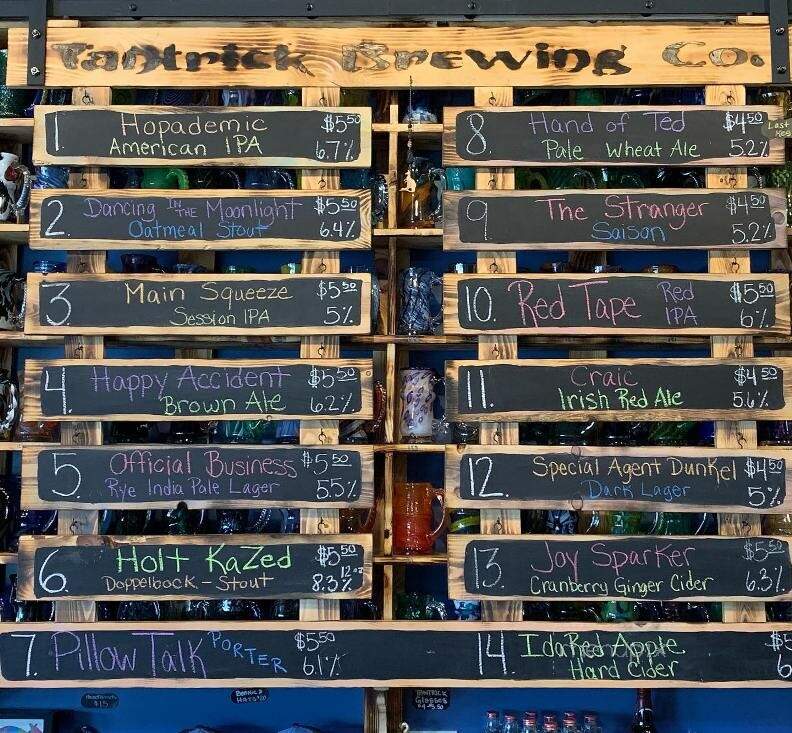 Tantrick Brewing Co.
1. Hopademic $5.50
American IPA 6.7%
2. Dancing IN THE Moonlight $5.50
Oatmeal Stout 6.4%
3. Main Squeeze $5.50
Session IPA 5%
4. Happy Accident $5.50
Brown Ale 6.2%
5. Official Business $5.50
Rye India Pale Lager 5.5%
6. Holt KaZed $5.50
12oz
Doppelbock - Stout 8.3%
7. Pillow Talk PORTER $5.50
6.1%
8. Hand of Ted $4.50
Last Keg
Pale Wheat Ale 5.2%
9. The Stranger $4.50
Saison 5.2%
10. Red Tape Red IPA $5.50
6%
11. Craic $4.50
Irish Red Ale 5.6%
12. Special Agent Dunkel $4.50
Dark Lager 5%
13. Joy Sparker $5.50
Cranberry Ginger Cider 6.3%
14. IdaRed Apple $5
Hard Cider 6
$15
BEANIES
HATS
TANTRICK
GLASSES